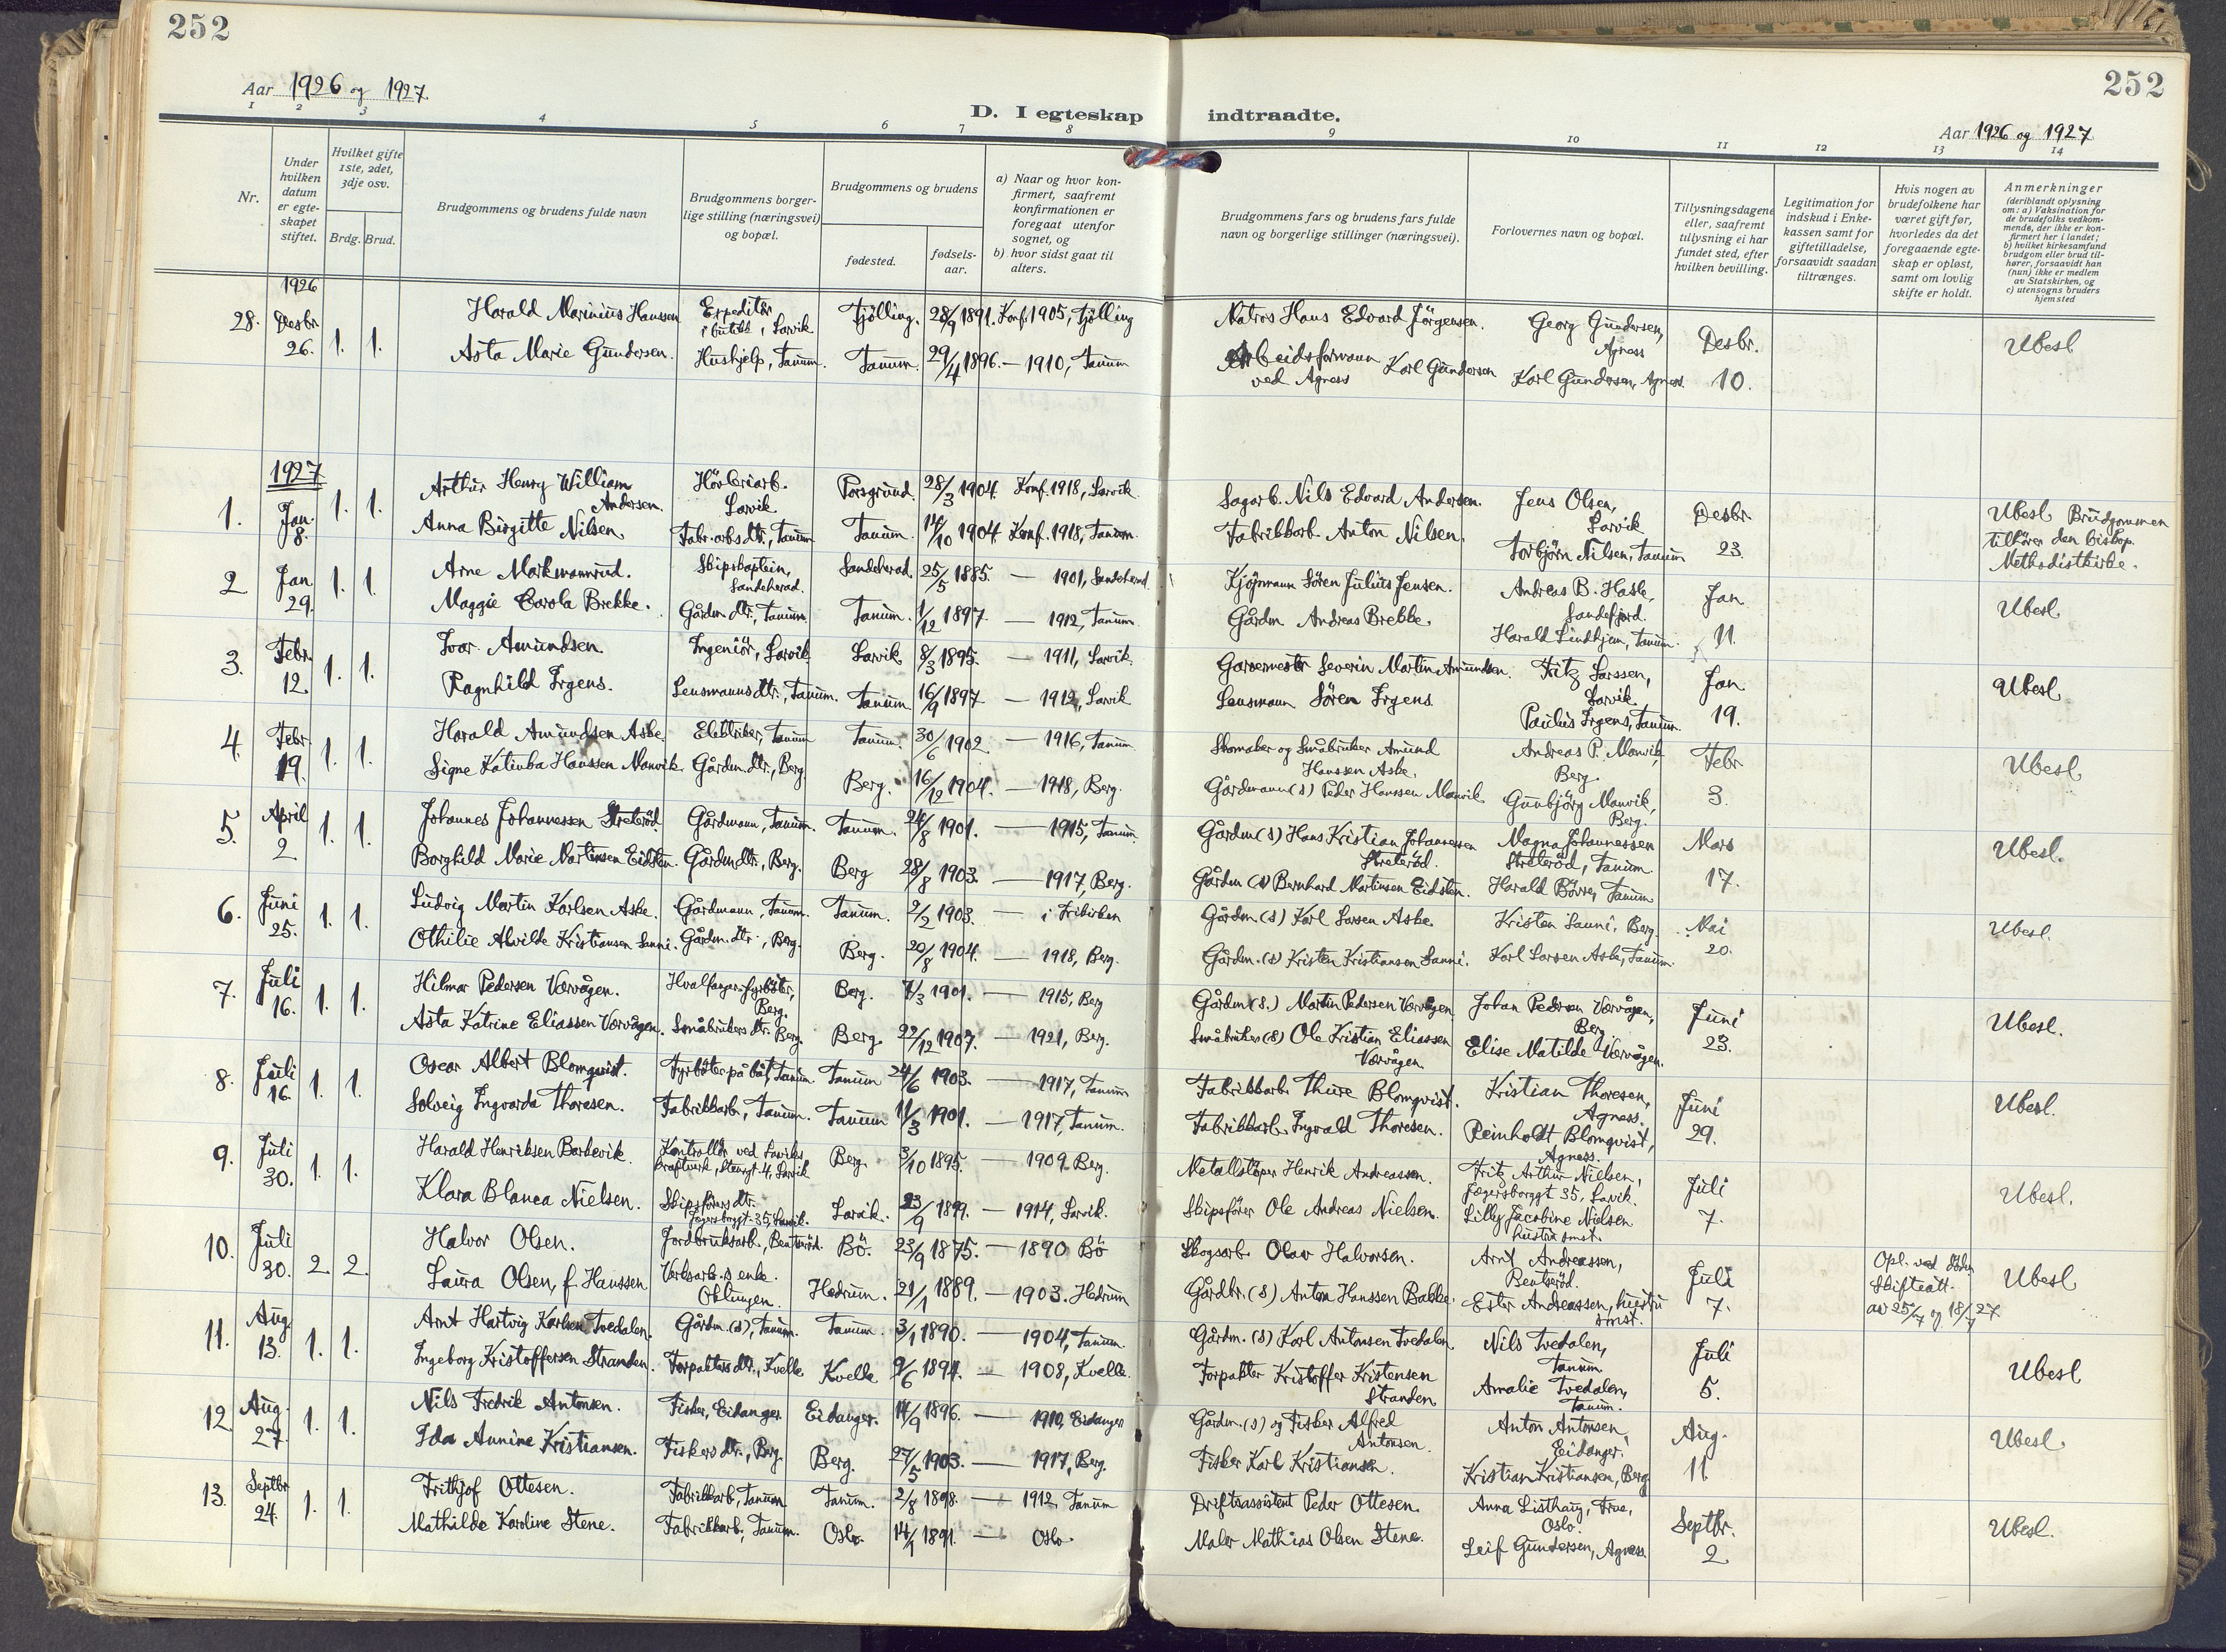 252
252
Aar 1926 og 1927
D. I egteskap indtraadte.
Aar 1926 og 1927
1 2 3 4 5 6 7 8 9 10 11 12 13 14
Nr.
Under hvilken datum er egteskapet stiftet.
Hvilket gifte 1ste, 2det, 3dje osv.
Brdg. Brud.
Brudgommens og brudens fulde navn
Brudgommens borgerlige stilling (næringsvei) og bopæl.
Brudgommens og brudens
fødested.
fødselsaar.
a) Naar og hvor konfirmert, saafremt konfirmationen er foregaat utenfor sognet, og
b) hvor sidst gaat til alters.
Brudgommens fars og brudens fars fulde navn og borgerlige stillinger (næringsvei).
Forlovernes navn og bopæl.
Tillysningsdagene eller, saafremt tillysning ei har fundet sted, efter hvilken bevilling.
Legitimation for indskud i Enkekassen samt for giftetilladelse, forsaavidt saadan tiltrænges.
Hvis nogen av brudefolkene har været gift før, hvorledes da det foregaaende egteskap er opløst, samt om lovlig skifte er holdt.
Anmerkninger (deriblandt oplysning om: a) Vaksination for de brudefolks vedkommende, der ikke er konfirmert her i landet; b) hvilket kirkesamfund brudgom eller brud tilhører, forsaavidt han (hun) ikke er medlem av Statskirken, og c) utensogns bruders hjemsted
1926
28. Desbr. 26. 1. 1. Harald Marinius Hanssen Expeditör i butikk, Larvik Tjölling. 28/9 1891. Konf. 1905, Tjölling Matros Hans Edvard Jörgensen. Georg Gundersen, Agness Desbr. 10. Ubesl
Asta Marie Gundersen. Hushjelp, Tanum. Tanum. 29/4 1896. — 1910, Tanum Arbeidsformann ved Agness Karl Gundersen Karl Gundersen, Agness.
1927
1. Jan. 8. 1. 1. Arthur Henry William Andersen. Larvik Porsgrund. 28/3 1904. Konf. 1918, Larvik Sagarb. Nils Edvard Andersen. Jens Olsen, Larvik Desbr. 23. Ubesl Brudgommen tilhører den bisкop. Methodistkirke.
Anna Birgitte Nilsen. Fabr. arbs dtr., Tanum Tanum. 14/10 1904 Konf. 1918, Tanum. Fabrikkarb. Anton Nilsen. Torbjörn Nilsen, Tanum
2 Jan 29. 1. 1. Arne Markmanrud. Skipskaptein, Sandeherad. Sandeherad. 25/5 1885. — 1901, Sandeherad Kjöpmann Sören Julius Jensen. Andreas B. Hasle, Sandefjord. Jan 11. Ubesl
Maggie Carola Brekke. Gårdm. dtr., Tanum. Tanum. 1/12 1897. — 1912, Tanum Gårdm Andreas Brekke. Harald Lindhjem, Tanum.
3. Febr. 12. 1. 1. Ivar Amundsen. Ingeniör, Larvik Larvik 8/3 1895. — 1911, Larvik. Garvermester Severin Martin Amundsen. Fritz Larssen, Larvik Jan 19. Ubesl
Ragnhild Irgens. Lensmanns dtr., Tanum. Tanum 16/9 1897 — 1912, Larvik Lensmann Sören Irgens. Paulus Irgens, Tanum.
4. Febr. 19. 1. 1. Harald Amundsen Aske. Elektriker, Tanum Tanum. 30/6 1902. — 1916, Tanum Skomaker og Småbruker Amund Hanssen Aske. Andreas P. Manvik Berg. Febr 3. Ubesl
Signe Katinka Hanssen Manvik. Gårdm. dtr., Berg Berg. 16/12 1904. — 1918, Berg. Gårdmann (s) Peder Hanssen Manvik Gunbjörg Manvik, Berg.
5. April 2 1. 1. Johannes Johannessen Streteröd. Gårdmann, Tanum. Tanum. 24/8 1901. — 1915, Tanum Gårdm (s) Hans Kristian Johannessen Streteröd. Magna Johannessen Streteröd, Tanum. Mars 17. Ubesl.
Borghild Marie Martinsen Eidsten. Gårdm dtr., Berg. Berg 28/8 1903. — 1917, Berg. Gårdm (s) Bernhard Martinsen Eidsten. Harald Börve, Tanum
6. Juni 25. 1. 1. Ludvig Martin Karlsen Aske. Gårdmann, Tanum. Tanum. 2/2 1903. — i Frikirken Gårdm. (s) Karl Larsen Aske. Kristen Sanni, Berg. Mai 20. Ubesl.
Othilie Alvilde Kristiansen Sanni. Gårdm. dtr., Berg. Berg. 20/8 1904. — 1918, Berg. Gårdm. (s) Kristen Kristiansen Sanni. Karl Larsen Aske, Tanum.
7. Juli 16. 1. 1. Hilmar Pedersen Værvågen. Hvalfanger-fyrböter, Berg. Berg. 7/3 1901. — 1915, Berg Gårdm (s.) Martin Pedersen Værvågen Johan Pedersen Værvågen, Berg Juni 23. Ubesl.
Asta Katrine Eliassen Værvågen. Småbrukers dtr. Berg Berg. 22/12 1907. — 1921, Berg. Småbruker (s) Ole Kristian Eliassen Værvågen Elise Matilde Værvågen.
8. Juli 16. 1. 1. Oscar Albert Blomqvist. Fyrböter på båt, Tanum Tanum 24/6 1903. — 1917, Tanum Fabrikkarb. Thure Blomqvist. Kristian Thoresen, Agness. Juni 29. Ubesl.
Solveig Ingvarda Thoresen. Fabrikkarb., Tanum. Tanum 11/3 1901. — 1917, Tanum. Fabrikkarb. Ingvald Thoresen. Reinholdt Blomqvist, Agness.
9. Juli 30. 1. 1. Harald Henriksen Barkevik. Kontrollör ved Larviks kraftverk, Stengt. 4, Larvik Berg. 3/10 1895. — 1909 Berg. Metallstöper Henrik Andreassen. Fritz Arthur Nielsen, Jegersborggt 35, Larvik. Juli 7. Ubesl.
Klara Blanca Nielsen. Skipsförers dtr. Jegersborggt. 35, Larvik. Larvik. 23/9 1899. — 1914, Larvik. Skipsförer Ole Andreas Nielsen. Lilly Jacobine Nielsen hustru smst.
10. Juli 30. 2. 2. Halvor Olsen. Jordbruksarb., Bentseröd. Bö. 23/9 1875. — 1890 Bö Skogsarb. Olav Halvorsen. Arnt Andreassen, Bentseröd. Juli 7. Opl. ved død. Skifteatt. av 25/7 og 18/7 27 Ubesl
Laura Olsen, f. Hanssen Verksarb.s enke. Oklungen. Hedrum. 21/1 1889. — 1903. Hedrum Gårdbr. (s) Anton Hanssen Bakke. Ester Andreassen, hustru smst.
11. Aug. 13. 1. 1. Arnt Hartvig Karlsen Tvedalen. Gårdm. (s), Tanum. Tanum. 3/1 1890. — 1904, Tanum. Gårdm. (s) Karl Antonsen Tvedalen Nils Tvedalen, Tanum Juli 5. Ubesl
Ingeborg Kristoffersen Stranden. Forpakters dtr., Kvelle Kvelle 9/6 1894. — 1908, Kvelle. Forpakter Kristoffer Kristensen Stranden. Amalie Tvedalen, Tanum.
12. Aug. 27. 1. 1. Nils Fredrik Antonsen. Fisker, Eidanger. Eidanger. 14/9 1896. — 1910, Eidanger Gårdm. (s) og Fisker Alfred Antonsen. Anton Antonsen, Eidanger. Aug. 11. Ubesl.
Ida Annine Kristiansen. Fiskers dtr., Berg Berg. 27/5 1903. — 1917, Berg. Fisker Karl Kristiansen. Kristian Kristiansen, Berg
13. Septbr 24. 1. 1. Frithjof Ottesen. Fabrikkarb, Tanum Tanum. 2/8 1898. — 1912 Tanum Driftsassistent Peder Ottesen. Anna Listhaug, Frue, Oslo. Septbr. 2. Ubesl.
Mathilde Karoline Stene. Fabrikkarb., Tanum. Oslo. 14/1 1891. — Oslo. Maler Mathias Olsen Stene. Leif Gundersen, Agness.